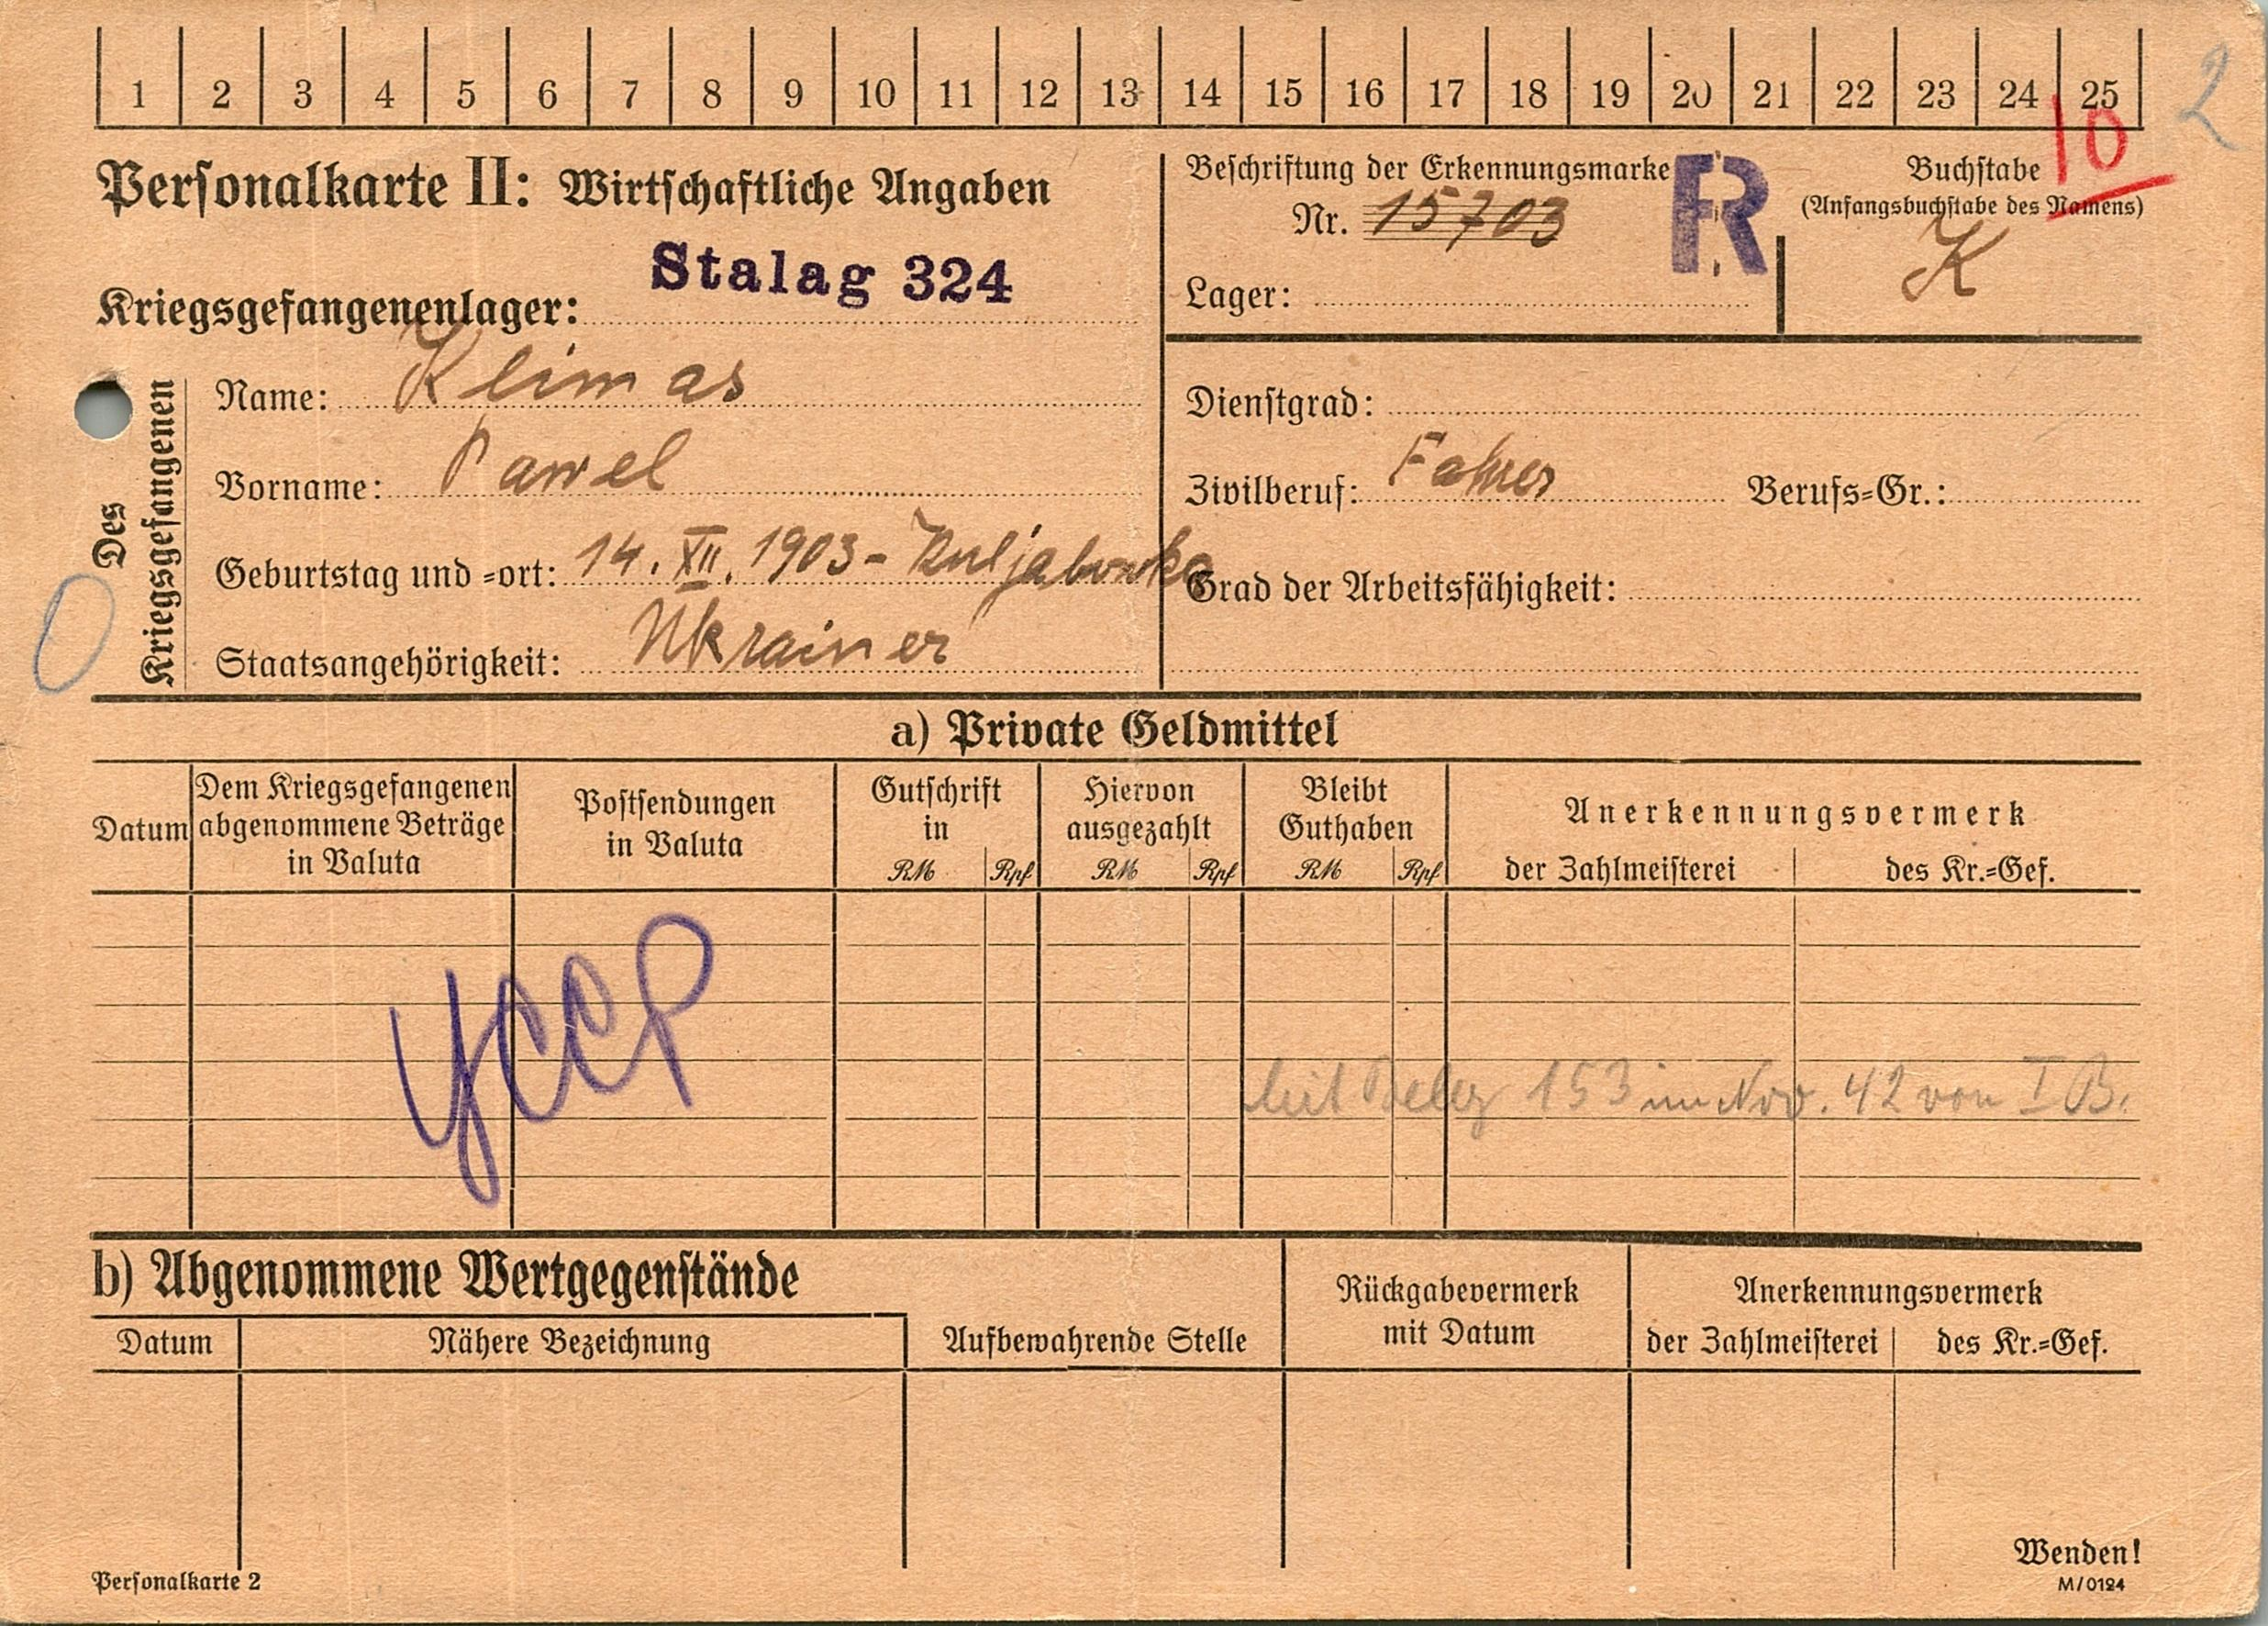 1 2 3 4 5 6 7 8 9 10 11 12 13 14 15 16 17 18 19 20 21 22 23 24 25
2
10
Personalkarte II: Wirtschaftliche Angaben
Beschriftung der Erkennungsmarke
Nr. 15703
R
Lager:
Buchstabe
(Anfangsbuchstabe des Namens)
K
Kriegsgefangenenlager: Stalag 324
Des Kriegsgefangenen
Name: Klimas
Vorname: Pawel
Geburtstag und =ort: 14. XII. 1903 - Kuljabowka
Staatsangehörigkeit: Ukrainer
Dienstgrad:
Zivilberuf: Fahrer Berufs=Gr.:
Grad der Arbeitsfähigkeit:
a) Private Geldmittel
Datum
Dem Kriegsgefangenen
abgenommene Beträge
in Valuta
Postsendungen
in Valuta
Gutschrift
in
RM Rpf
Hiervon
ausgezahlt
RM Rpf
Bleibt
Guthaben
RM Rpf
Anerkennungsvermerk
der Zahlmeisterei des Kr.=Gef.
УССР
Mit Beleg 153 im Nov. 42 von I B.
b) Abgenommene Wertgegenstände
Datum
Nähere Bezeichnung
Aufbewahrende Stelle
Rückgabevermerk
mit Datum
Anerkennungsvermerk
der Zahlmeisterei des Kr.=Gef.
Wenden!
Personalkarte 2
M/0124